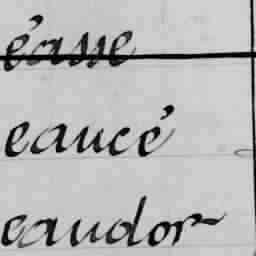 éasse
eaucé
eaudor